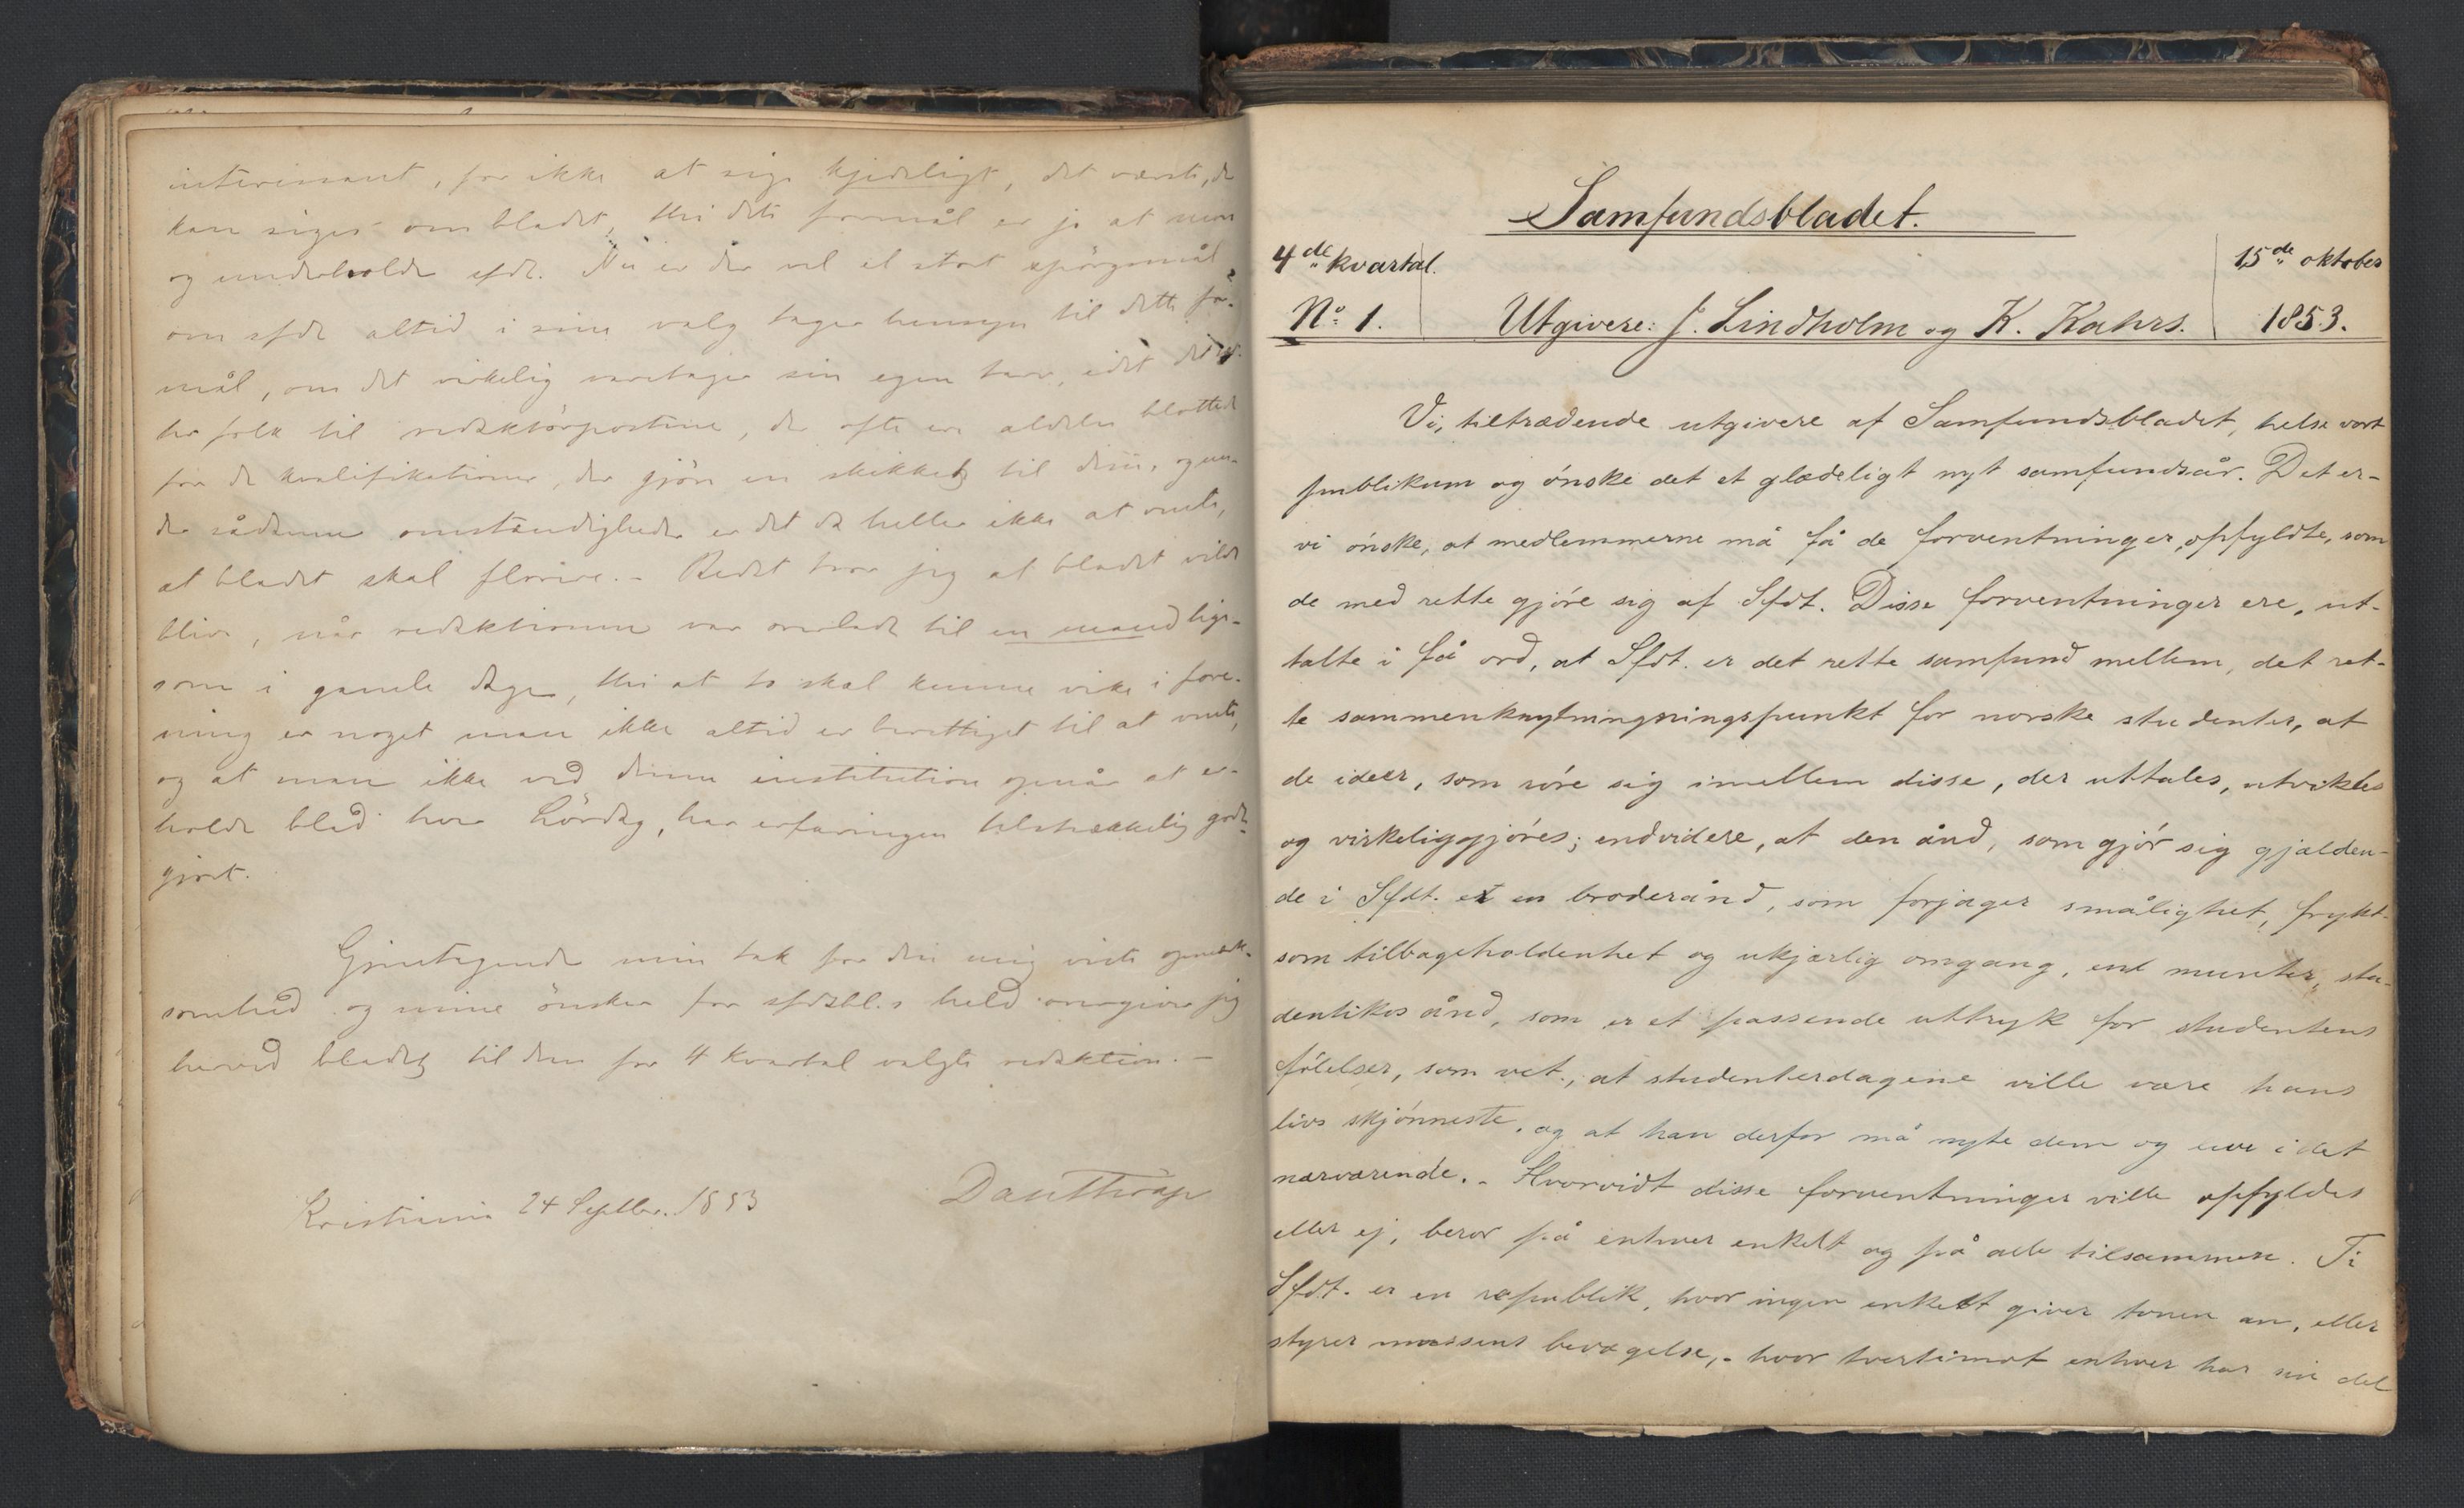 interessant, for ikke at sige kjedeligt, det værste, der
kan siges om bladet, thi dets formål er jo at more
og underholde sfdt. Nu er der vel et stort spörgsmål,
om sfdt altid i sine valg tager hensyn til dette for-
mål, om det virkelig varetager sin egen tarv, idet det
ter folk til redaktörposterne, der ofte ere aldeles blottede
for de kvalifikationer, der gjöre en skikket til den, og un-
der sådanne omstændigheder er det da heller ikke at vente,
at bladet skal florire. - Bedst tror jeg at bladet vilde
blive, når redaktionen var overladt til en mand lige-
som i gamle dage, thi at to skal kunne virke i fore-
ning er noget man ikke altid er berettiget til at vente,
og at man ikke ved denne institution opnår at er-
holde blad hver Lördag, har erfaringen tilstrækkelig godt-
gjort.
Gjentagende min tak for den mig viste opmærk-
somhed og mine önsker for sfdsbl.s held overgiver jeg
herved bladet til den for 4 kvartal valgte redaktion. -
Kristiania 24 Septbr. 1853
Dan Thrap
Samfundsbladet.
4de kvartal.
15de oktober
No. 1.
Utgivere: J. Lindholm og K. Kahrs.
1853.
Vi, tiltrædende utgivere af Samfundsbladet, helse vort
publikum og ónske det et glædeligt nyt samfundsår. Det er-
vi ónske, at medlemmerne må få de forventninger opfyldte, som
de med rette gjóre sig af Sfdt. Disse forventninger ere, ut-
talte i få ord, at Sfdt. er det rette samfund mellem, det ret-
te sammenknytningningspunkt for norske studenter, at
de ideer, som róre sig imellem disse, der uttales, utvikles
og virkeliggjóres; endvidere, at den ånd, som gjór sig gjælden-
de i Sfdt. er en broderånd, som forjager smålighet, frykt-
som tilbageholdenhet og ukjærlig omgang, en munter, stu-
dentikos ånd, som er et passende uttryk for studentens
fólelser, som vet, at studenterdagene ville være hans
livs skjónneste, og at han derfor må nyte dem og leve i det
nærværende. - Hvorvidt disse forventninger ville opfyldes
eller ej, beror på enhver enkelt og på alle tilsammen. Ti
Sfdt. er en republik, hvor ingen enkelt giver tonen an, eller
styrer massens bevægelse, - hvor tvertimot enhver har sin del